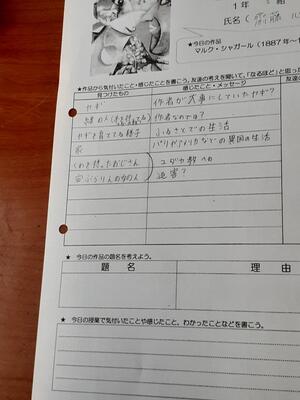 1年 組
氏名（齋藤
★今日の作品
マルク・シャガール（1887〜1
★作品から気付いたこと・感じたことを書こう。友達の考えを聞いて、「なるほど」と思った
見つけたもの
感じたこと・メッセージ
ヤギ
作者が大事にしていたヤギ？
緑の人
作者なのでは？
ヤギを育てる様子
ふるさとでの生活
家
パリやアメリカなどの異国の生活
くわを持ったおじさん
ユダヤ教への
迫害？
★今日の作品の題名を考えよう。
題 名
理 由
★今日の授業で気付いたことや感じたこと、わかったことなどを書こう。